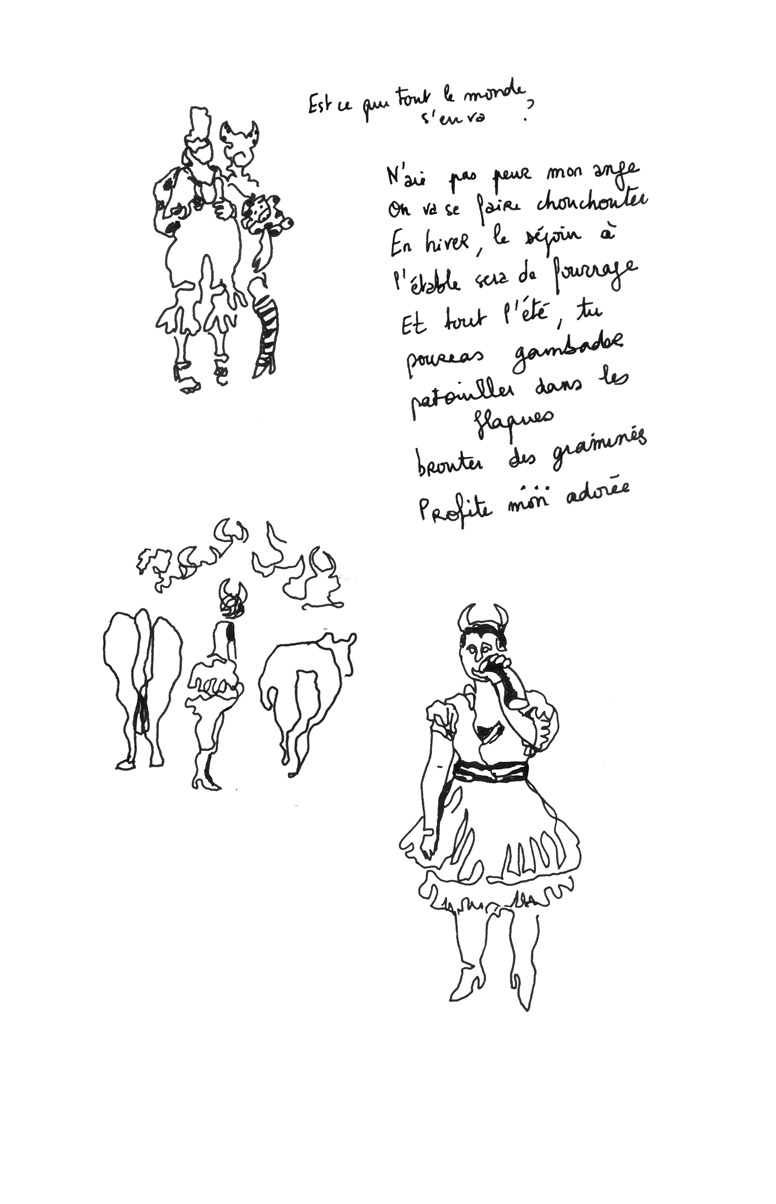 Est ce que tout le monde
s'en va ?
N'aie pas peur mon ange
On va se faire chouchouter
En hiver, le séjour à
l'étable sera de fourrage
Et tout l'été, tu
pourras gambader
patouiller dans les
flaques
brouter des graminés
Profite mon adorée